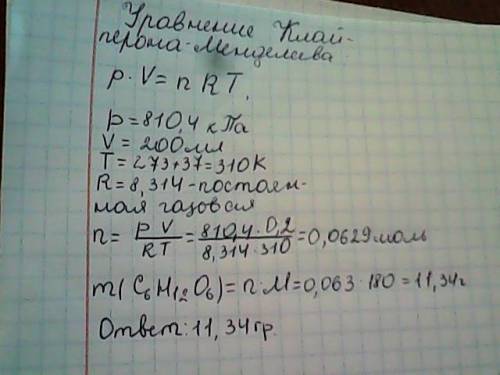 Уравнение Клай-
перона-Менделеева
p·V = n RT.
p = 810,4 кПа
V = 200мл
T = 273+37=310К
R = 8,314-постоян-
ная газовая
n = PV/RT = 810,4·0,2/8,314·310 = 0,0629 моль
m(C₆H₁₂O₆) = n·M=0,063·180=11,34г
Ответ: 11,34гр.